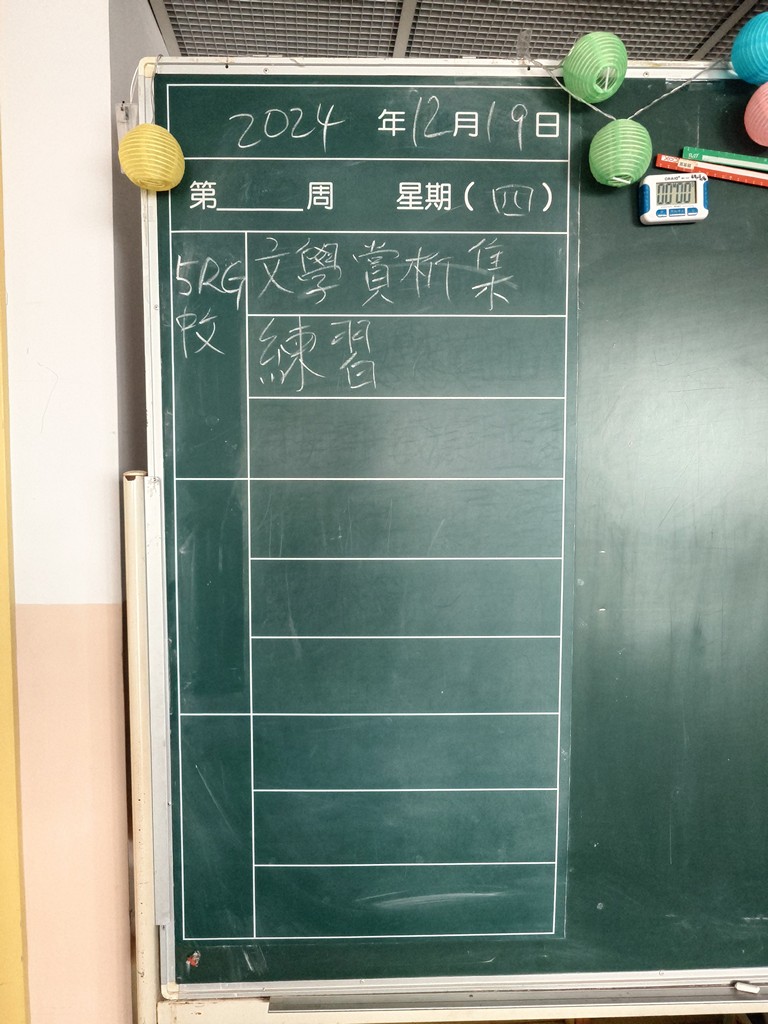 2024年12月19日
第____周 星期(四)
5RG 文學賞析集
練習
00'00"